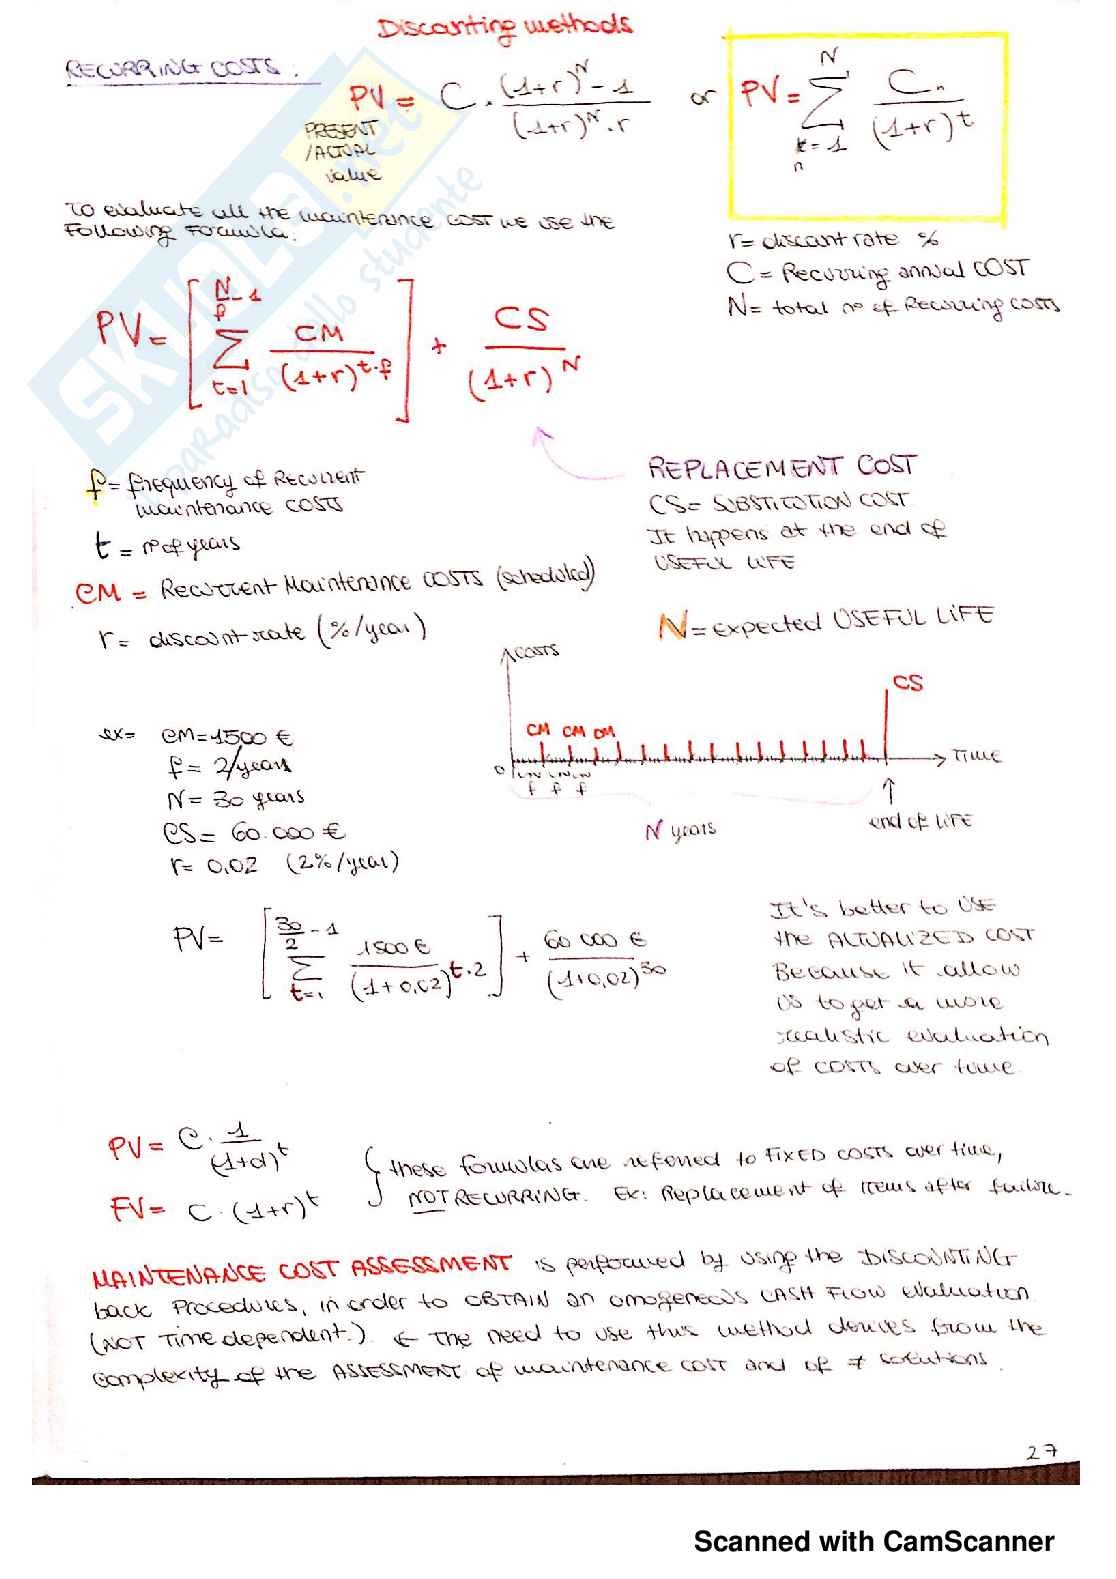 Discounting methods
RECURRING COSTS:
PV = C · ((1+r)^N - 1) / ((1+r)^N · r) or PV = Σ_{t=1}^{N} C_n / (1+r)^t
n
PRESENT
/ACTUAL
value
To evaluate all the maintenance COST we use the
Following Formula.
r= discount rate %
C = Recurring annual COST
N= total n° of Recurring costs
PV = [ Σ_{t=1}^{N/f - 1} CM / (1+r)^{t·f} ] + CS / (1+r)^N
f= frequency of Recurrent
maintenance COSTS
t = n° of years
CM = Recurrent Maintenance COSTS (scheduled)
r= discount rate (%/year)
REPLACEMENT COST
CS= SUBSTITUTION COST
It happens at the end of
USEFUL LIFE
N= expected USEFUL LIFE
COSTS
CS
CM CM CM
0
TIME
f f f
N years
end of LIFE
ex= CM=1500 €
f= 2/years
N= 30 years
CS= 60.000 €
r= 0,02 (2%/year)
PV= [ Σ_{t=1}^{30/2 - 1} 1500 € / (1+0,02)^{t·2} ] + 60 000 € / (1+0,02)^30
It's better to USE
the ACTUALIZED COST
Because it allow
US to get a more
realistic evaluation
of COSTS over time
PV= C · 1 / (1+d)^t
FV= C · (1+r)^t
these formulas are referred to FIXED COSTS over time,
NOT RECURRING. Ex: Replacement of items after failure.
MAINTENANCE COST ASSESSMENT is performed by using the DISCOUNTING
back Procedures, in order to OBTAIN an omogeneous CASH FLOW evaluation
(NOT Time dependent.). ← The need to use this method derives from the
complexity of the ASSESSMENT of maintenance COST and of ≠ solutions.
27
SKUOLA.net
il paradiso dello studente
Scanned with CamScanner